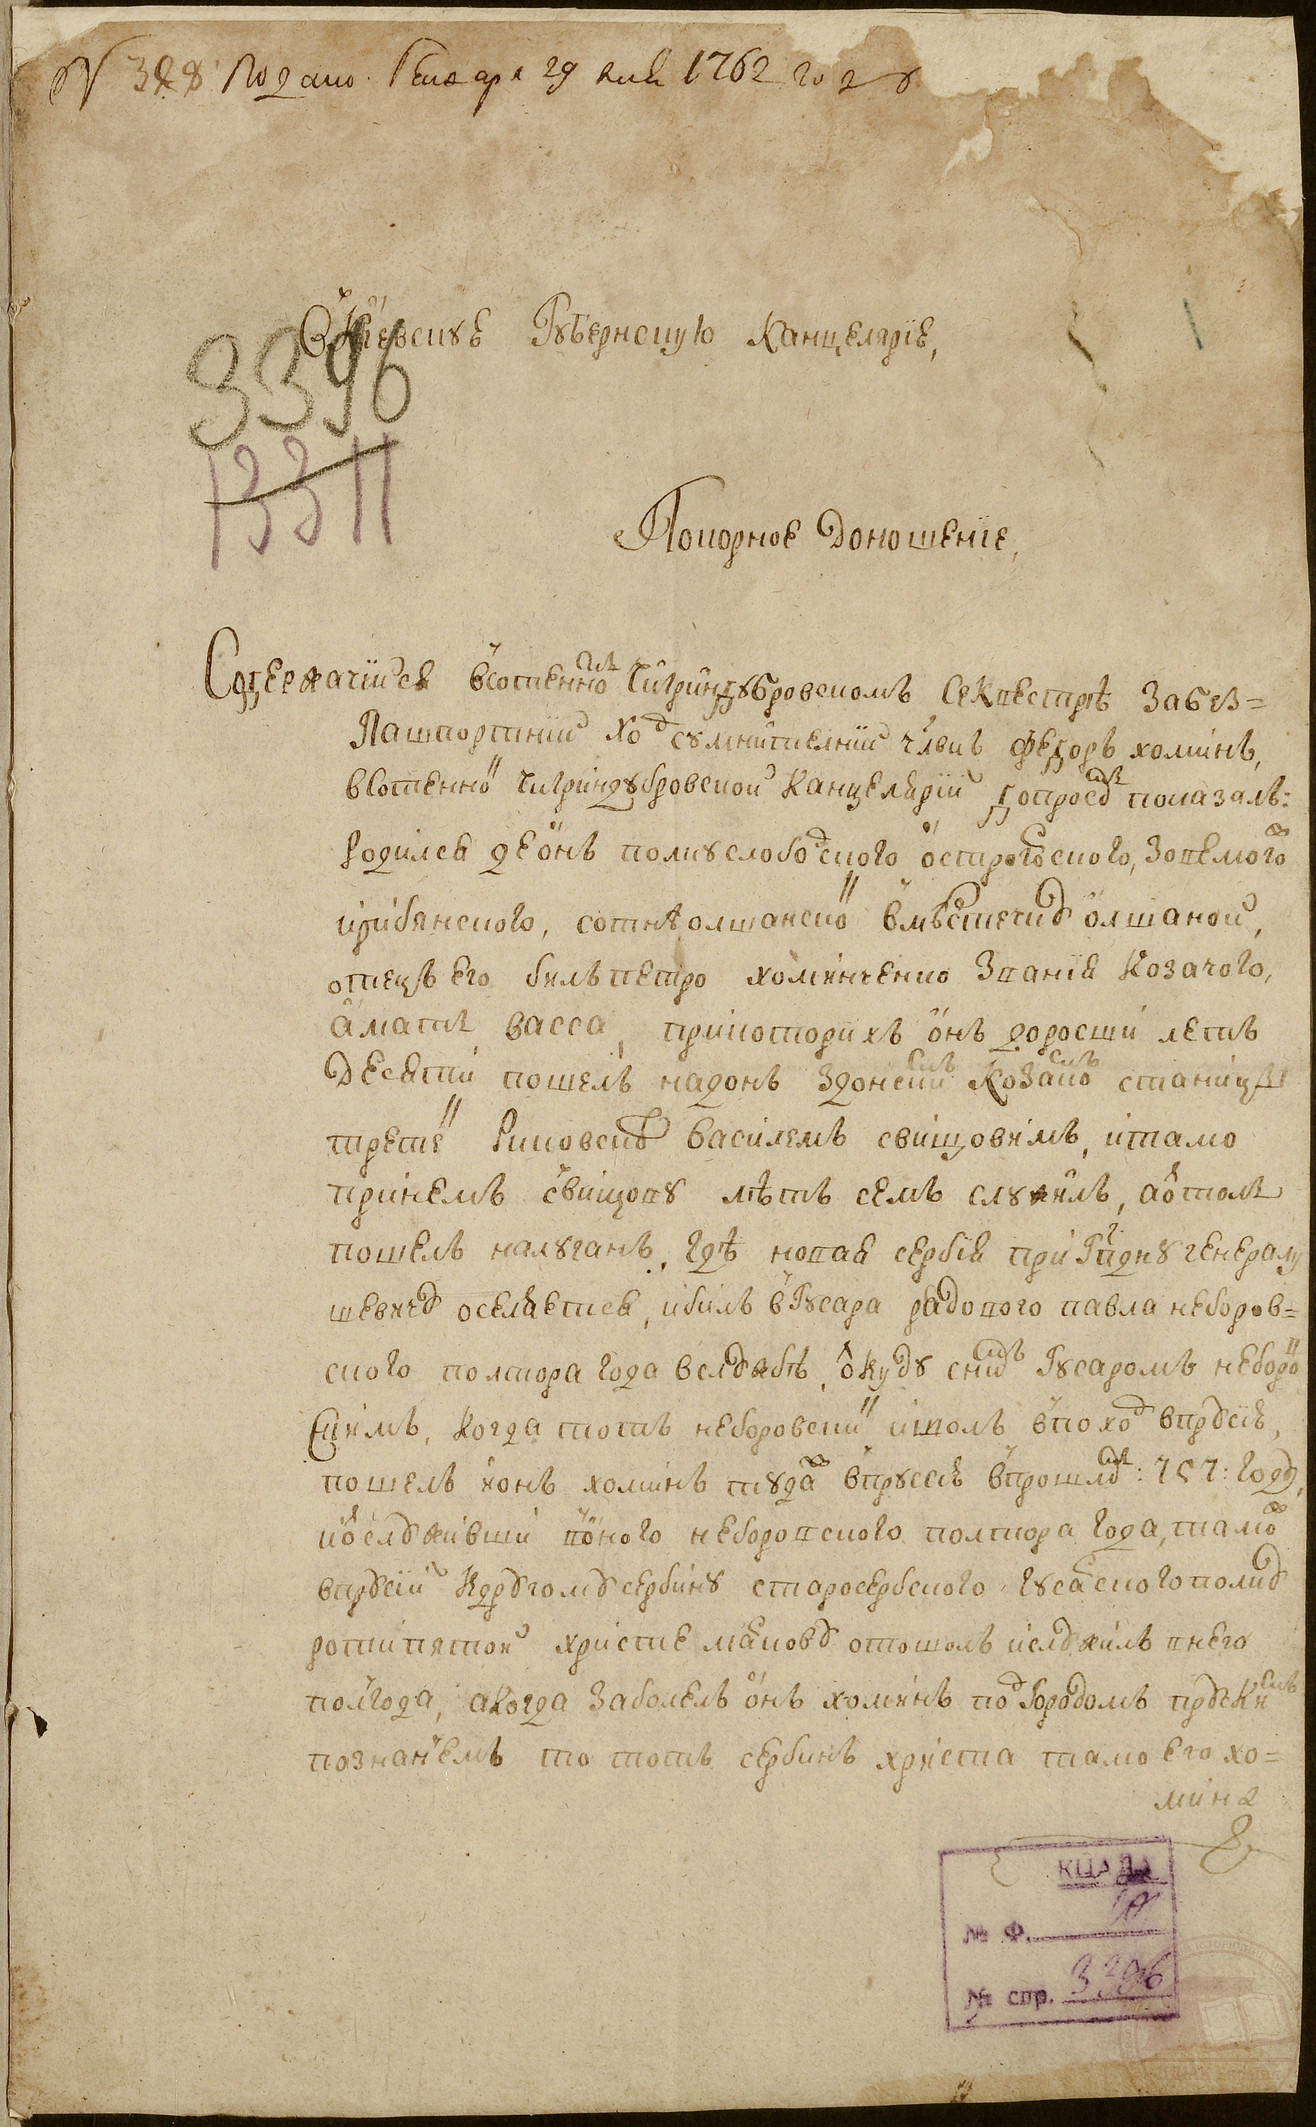 № 328 Подано Генваря 29 дня 1762 году
В Киевскую Губернскую Канцелярїю,
3396
13311
Покорное доношение,
Содержачийся в сотенном Чигриндубровском секвестрѣ за без=
пашпортний ход сумнителний члвкъ федоръ хоминъ,
в сотенной Чигриндубровской канцелярїи допросомъ показалъ:
родился де онъ полку слободского острогожского, земого
ирибянского, сотнѣ олшанской в мѣстечку олшаной,
отецъ его билъ петро хоминченко званїя козачого,
а мать васса, при которихъ онъ доросши летъ
десяти пошелъ на донъ з донскимъ козакомъ станицѣ
третей Риковской василемъ свищовимъ, и тамо
при немъ свищову лѣтъ семъ служилъ, а оттоль
пошелъ на луганъ, гдѣ новая сербїя при Гпдну генералу
шевичу оселяется, и билъ в Гусара радового павла неборов=
ского полтора года в службѣ, откуду с нимъ Гусаромъ неборов
скимъ, когда тотъ неборовский ишолъ в поход в прусїю,
пошелъ и онъ хоминъ туда в прусїю в прошломъ: 757: году,
и отслуживши в оного неборовского полтора года, тамо
в прусїи к другому сербину старосербского гусарского полку
роти пятой христе мановѣ отошолъ и служилъ в него
полгода, а когда заболелъ онъ хоминъ под городомъ прускимъ
познанемъ то тотъ сербинъ христа тамо его хо=
мина
КЦАДА
№ Ф. 59
№ спр. 3396